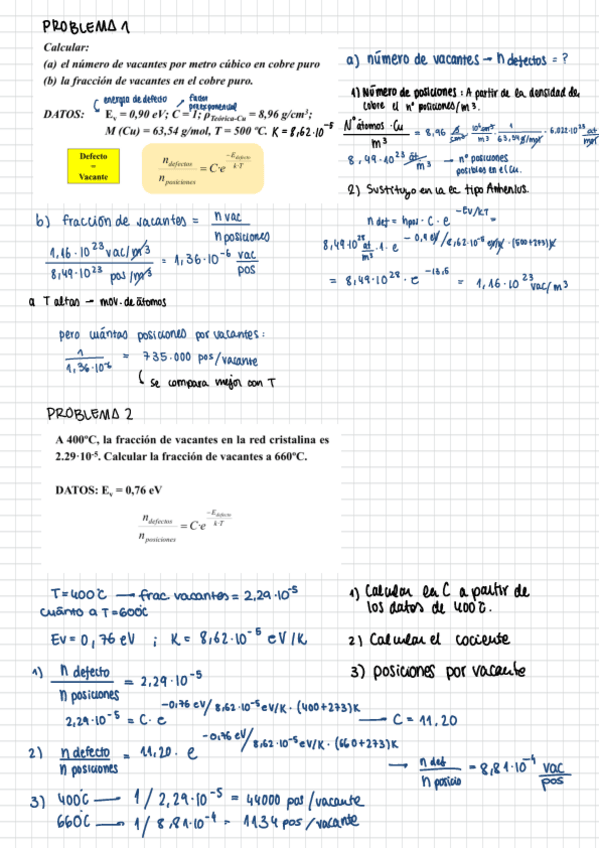 PROBLEMA 1
Calcular:
(a) el número de vacantes por metro cúbico en cobre puro
(b) la fracción de vacantes en el cobre puro.
energía de defecto
factor preexponencial
DATOS: E_v = 0,90 eV; C = 1; ρ_Teórica-Cu = 8,96 g/cm³;
M (Cu) = 63,54 g/mol, T = 500 ºC. K = 8,62·10⁻⁵
Defecto
=
Vacante
n_defectos / n_posiciones = C·e^(-E_defecto / k·T)
a) número de vacantes → n defectos = ?
1) Número de posiciones: A partir de la densidad de
cobre el nº posiciones/m³.
Nº átomos·Cu / m³ = 8,96 g/cm³ · 10⁶cm³ / m³ · 1 / 63,54 g/mol · 6,022·10²³ at/mol
8,49·10²³ at/m³ → nº posiciones
posibles en el Cu.
2) Sustituyo en la ec tipo Arrhenius.
n def = npos · C · e^(-EV/KT)
8,49·10²⁸ at/m³ · 1 · e^(-0,9 eV/8,62·10⁻⁵ eV/K · (500+273)K)
= 8,49·10²⁸ · e^(-13,6) = 1,16·10²³ vac/m³
b) fracción de vacantes = n vac / n posiciones
1,16·10²³ vac/m³ / 8,49·10²³ pos/m³ = 1,36·10⁻⁶ vac/pos
a T altas → mov. de átomos
pero cuántas posiciones por vacantes:
1 / 1,36·10⁻⁶ = 735.000 pos/vacante
se compara mejor con T
PROBLEMA 2
A 400ºC, la fracción de vacantes en la red cristalina es
2.29·10⁻⁵. Calcular la fracción de vacantes a 660ºC.
DATOS: E_v = 0,76 eV
n_defectos / n_posiciones = C·e^(-E_defecto / k·T)
T = 400ºC → frac. vacantes = 2,29·10⁻⁵
cuánto a T = 600ºC
Ev = 0,76 eV ; K = 8,62·10⁻⁵ eV/K
1) Calcular la C a partir de
los datos de 400ºC.
2) Calcular el cociente
3) posiciones por vacante
1) n defecto / n posiciones = 2,29·10⁻⁵
2,29·10⁻⁵ = C · e^(-0,76 eV/8,62·10⁻⁵eV/K · (400+273)K) → C = 11,20
2) n defecto / n posiciones = 11,20 · e^(-0,76 eV/8,62·10⁻⁵eV/K · (660+273)K)
→ n def / n posicio = 8,81·10⁻⁴ vac/pos
3) 400ºC → 1 / 2,29·10⁻⁵ = 44000 pos/vacante
660ºC → 1 / 8,81·10⁻⁴ = 1134 pos/vacante